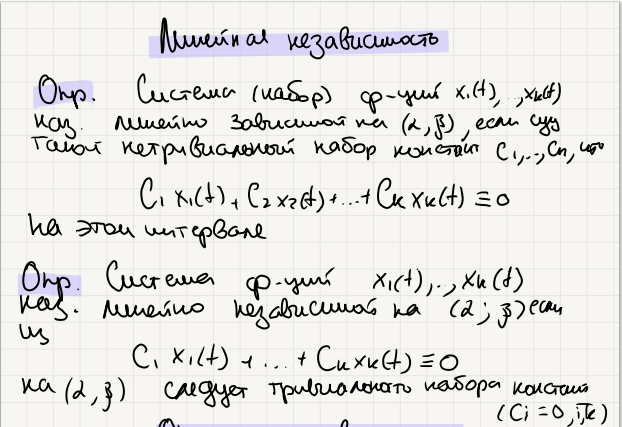 Линейная независимость
Опр. Система (набор) ф-ций x₁(t),..,xₖ(t)
наз. линейно зависимой на (α, β), если сущ
такой нетривиальный набор констант C₁,..,Cₙ, что
C₁ x₁(t) + C₂ x₂(t) + ... + Cₖ xₖ(t) ≡ 0
на этом интервале
Опр. Система ф-ций x₁(t),.., xₖ(t)
наз. линейно независимой на (α; β) если
из
C₁ x₁(t) + ... + Cₖ xₖ(t) ≡ 0
на (α, β) следует тривиального набора констант
(Cᵢ = 0, i,k)